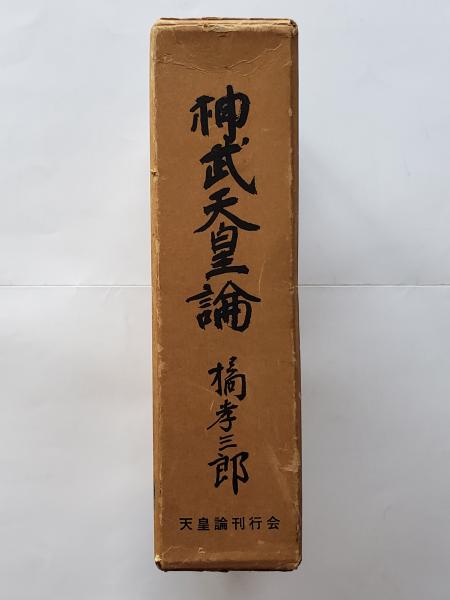 神武天皇論
橘孝三郎
天皇論刊行会